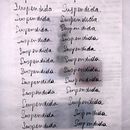 Suspendida Suspendida
Suspendida Suspendida
Suspendida Suspendida
Suspendida Suspendida
Suspendida Suspendida
Suspendida Suspendida
Suspendida Suspendida
Suspendida Suspendida
Suspendida Suspendida
Suspendida Suspendida